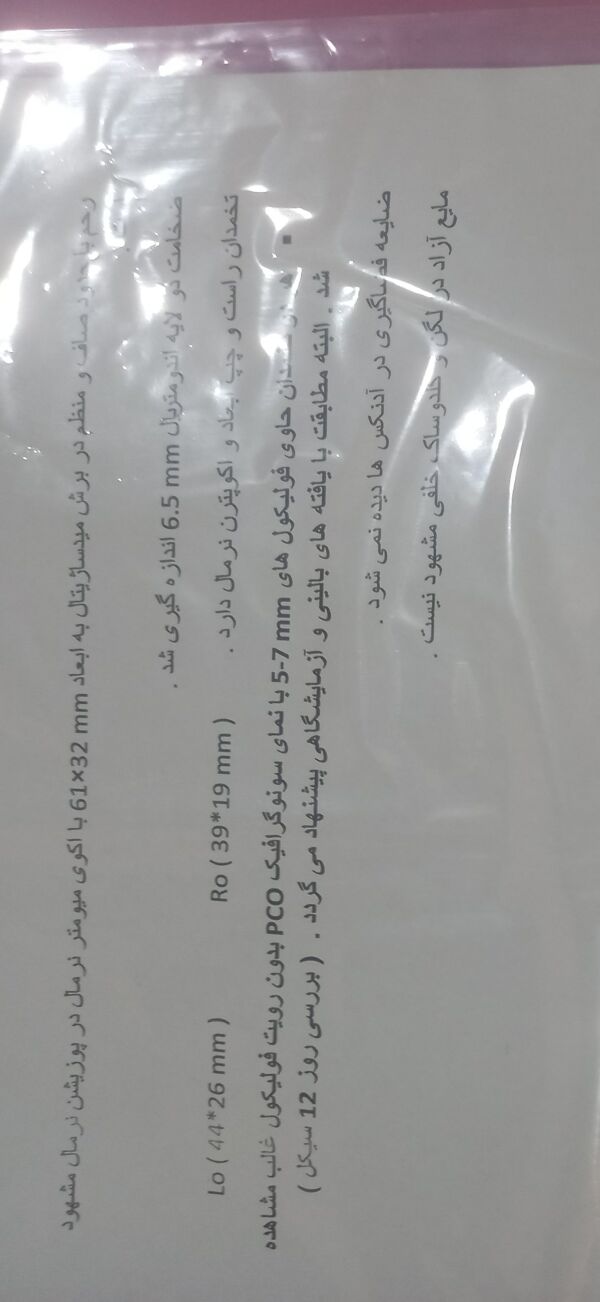 رحم با حدود صاف و منظم در برش میدساژیتال به ابعاد 61×32 mm با اکوی میومتر نرمال در پوزیشن نرمال مشهود
ضخامت دو لایه اندومتریال 6.5 mm اندازه گیری شد .
تخمدان راست و چپ ابعاد و اکوپترن نرمال دارد . Ro ( 39*19 mm ) Lo ( 44*26 mm )
▪ هر دو تخمدان حاوی فولیکول های 5-7 mm با نمای سونوگرافیک PCO بدون رویت فولیکول غالب مشاهده
شد . البته مطابقت با یافته های بالینی و آزمایشگاهی پیشنهاد می گردد . ( بررسی روز 12 سیکل )
ضایعه فضاگیری در آدنکس ها دیده نمی شود .
مایع آزاد در لگن و کلدوساک خلفی مشهود نیست .